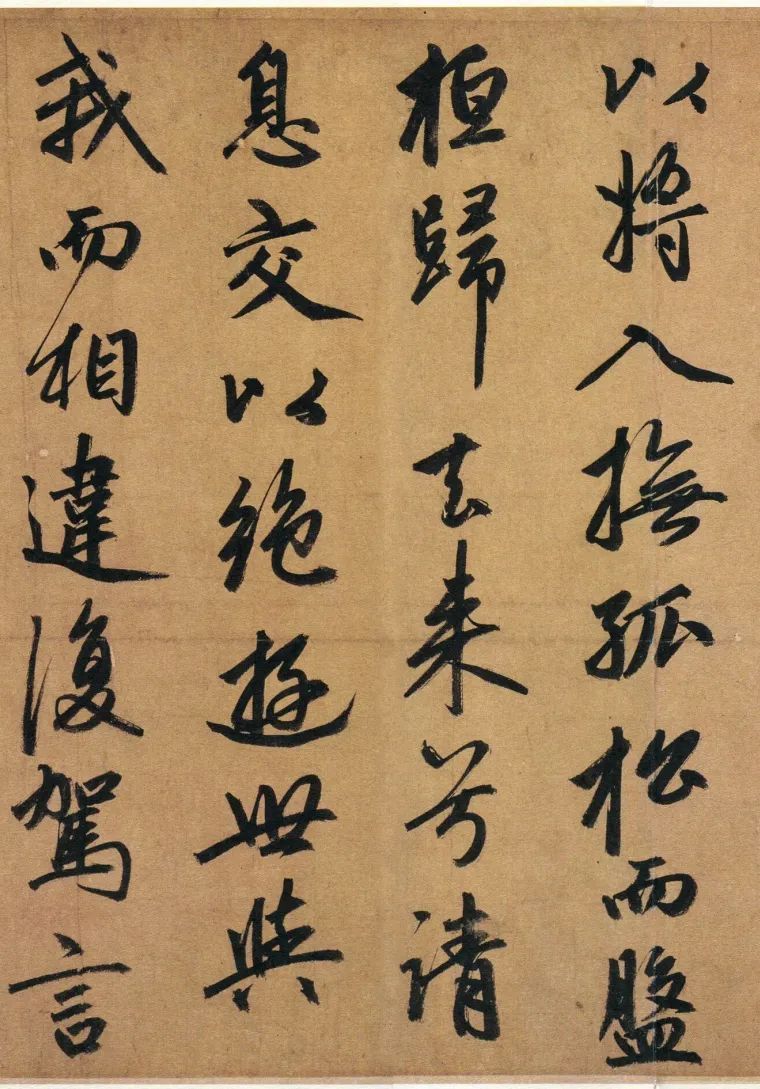 以將入撫孤松而盤
桓歸去来兮請
息交以絶遊世與
我而相違復駕言